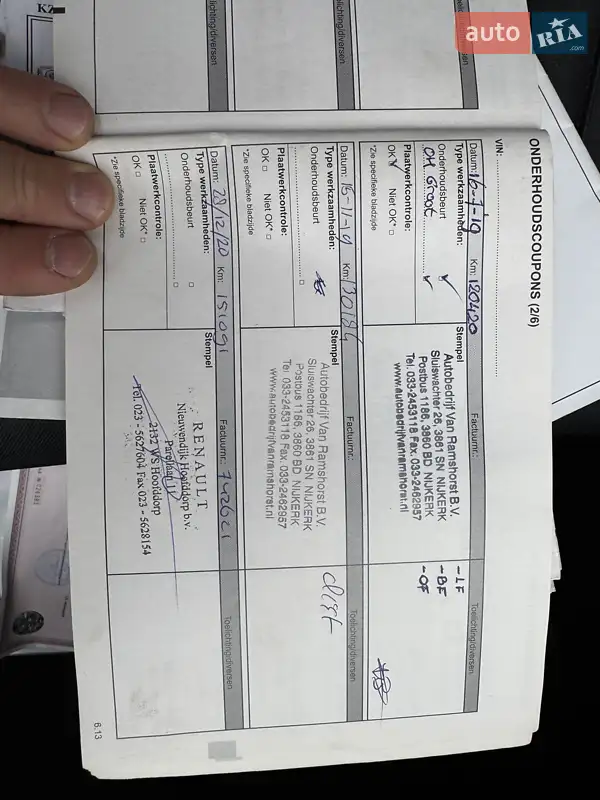 auto RIA.com
KZ
Toelichting/diversen
Toelichting/diversen
Toelichting/diversen
ONDERHOUDSCOUPONS (2/6)
VIN:
Datum: 16-7-'19 Km: 120400
Factuurnr.:
Toelichting/diversen
Type werkzaamheden:
Onderhoudsbeurt ✓
OH Groot ✓
Plaatwerkcontrole:
OK ✓ Niet OK* □
*Zie specifieke bladzijde
Stempel
Autobedrijf Van Ramshorst B.V.
Sluiswachter 26, 3861 SN NIJKERK
Postbus 1186, 3860 BD NIJKERK
Tel. 033-2453118 Fax. 033-2462957
www.autobedrijfvanramshorst.nl
- IF
- BF
- OF
Datum: 15-11-19 Km: 130184
Factuurnr.:
Toelichting/diversen
Type werkzaamheden:
Onderhoudsbeurt
Plaatwerkcontrole:
OK □ Niet OK* □
*Zie specifieke bladzijde
Stempel
Autobedrijf Van Ramshorst B.V.
Sluiswachter 26, 3861 SN NIJKERK
Postbus 1186, 3860 BD NIJKERK
Tel. 033-2453118 Fax. 033-2462957
www.autobedrijfvanramshorst.nl
Datum: 28/12/20 Km: 151091
Factuurnr.: 742621
Toelichting/diversen
Type werkzaamheden:
Onderhoudsbeurt □
Plaatwerkcontrole:
OK □ Niet OK* □
*Zie specifieke bladzijde
Stempel
RENAULT
Nieuwendijk Hoofddorp b.v.
2132 WS Hoofddorp
Tel. 023 - 5627604 Fax 023 - 5628154
6.13